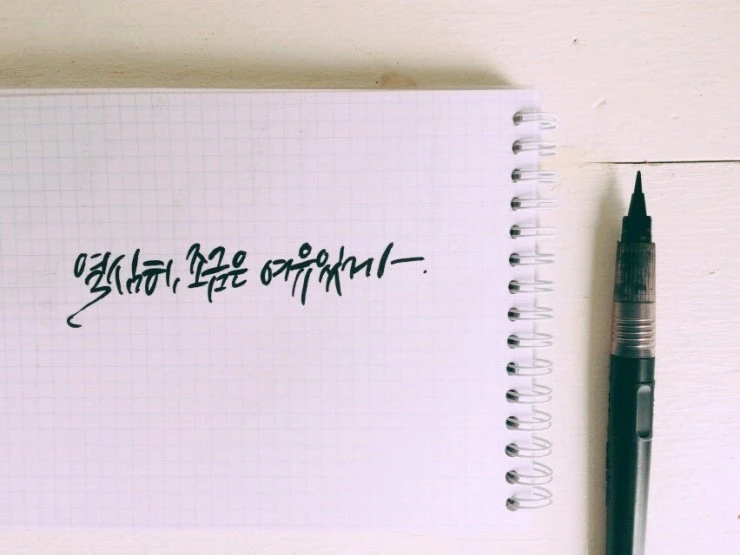 열심히, 조금은 여유있게-.